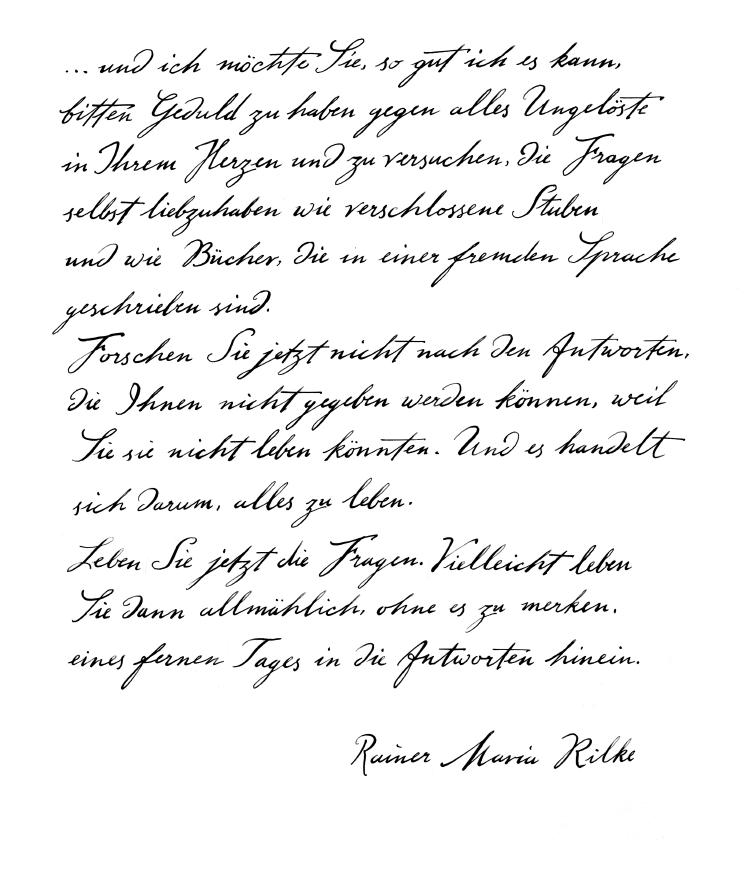 ... und ich möchte Sie, so gut ich es kann,
bitten Geduld zu haben gegen alles Ungelöste
in Ihrem Herzen und zu versuchen, die Fragen
selbst liebzuhaben wie verschlossene Stuben
und wie Bücher, die in einer fremden Sprache
geschrieben sind.
Forschen Sie jetzt nicht nach den Antworten,
die Ihnen nicht gegeben werden können, weil
Sie sie nicht leben könnten. Und es handelt
sich darum, alles zu leben.
Leben Sie jetzt die Fragen. Vielleicht leben
Sie dann allmählich, ohne es zu merken,
eines fernen Tages in die Antworten hinein.
Rainer Maria Rilke